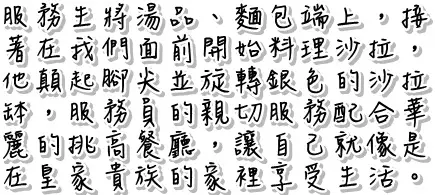 服務生將湯品、麵包端上，接
著在我們面前開始料理沙拉，
他顛起腳尖並旋轉銀色的沙拉
缽，服務員的親切服務配合華
麗的挑高餐廳，讓自己就像是
在皇家貴族的家裡享受生活。